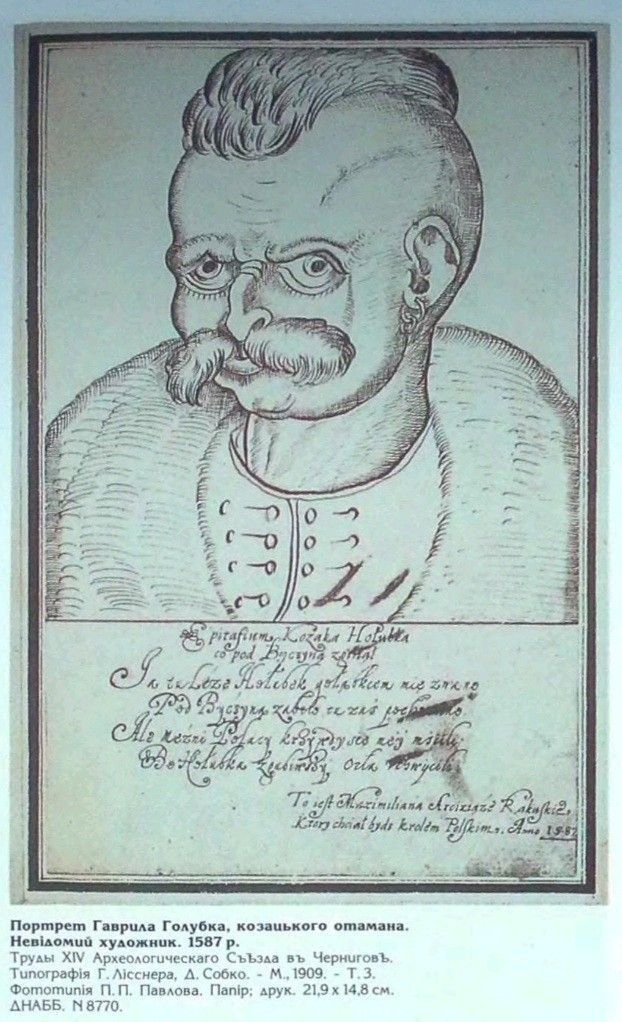 Epitafium Kozaka Hołubka
co pod Byczyną
Ja tu Leże Hołubek
Pod Byczyną tu zaś
Ale mężni Polacy krzywdy
Bo Hołubka Orła
To jest Maximiliana Arcixiąże Rakuskie,
Ktory chciał bydz Krolem Polskim. Anno 1587
Портрет Гаврила Голубка, козацького отамана.
Невідомий художник. 1587 р.
Труды XIV Археологическаго Съѣзда въ Черниговѣ.
Типографія Г. Лісснера, Д. Собко. - М., 1909. - Т. 3.
Фототипія П. П. Павлова. Папір; друк. 21,9 х 14,8 см.
ДНАББ. N 8770.